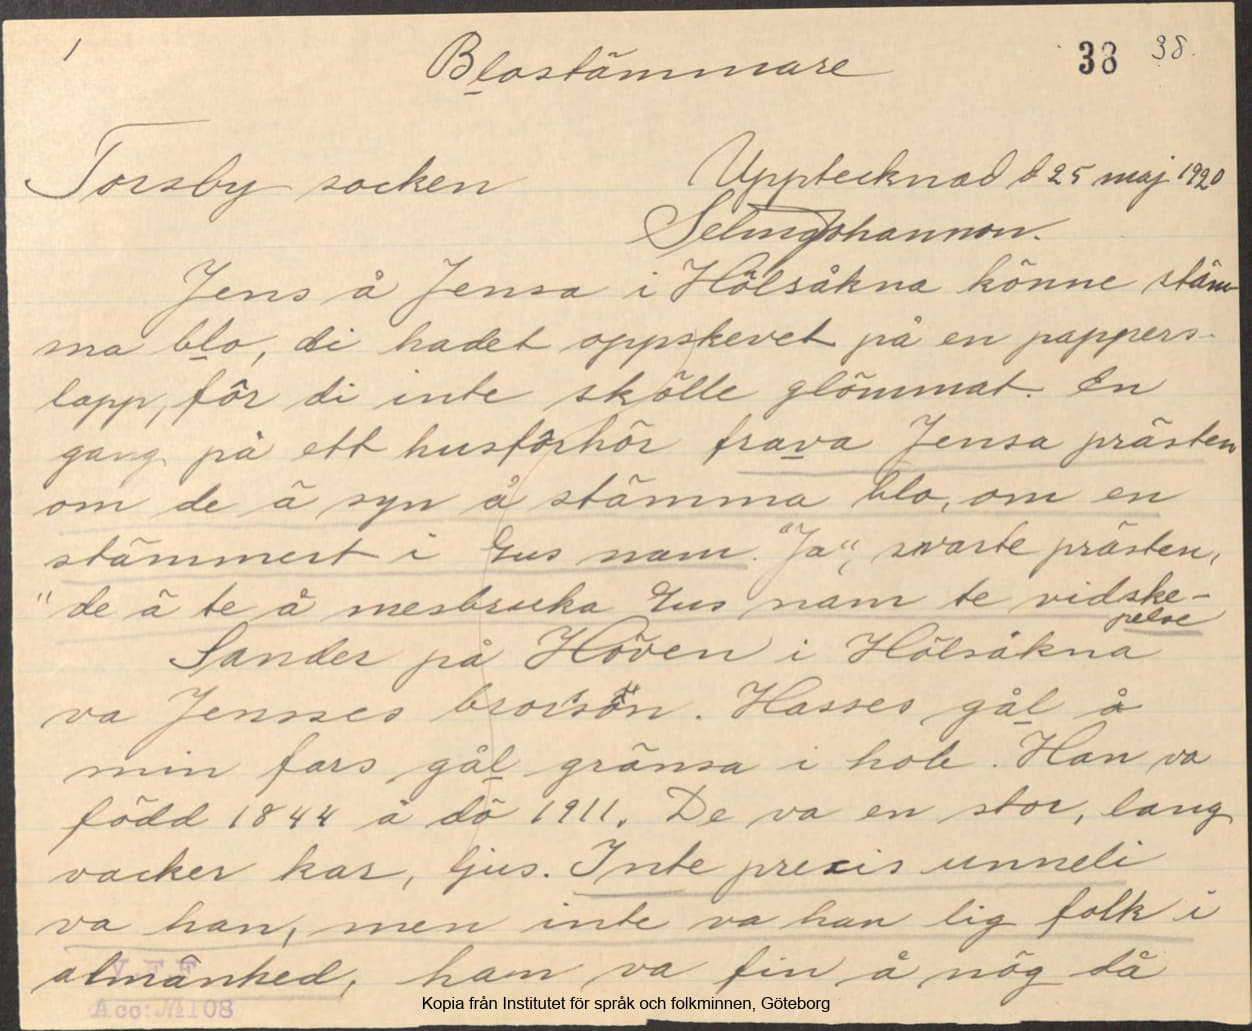 1 Blostämmare 38 38.
Torsby socken Upptecknad d 25 maj 1920
Selma Johannson.
Jens å Jensa i Hölsåkna könne stäm-
ma blo, di hadet oppskevet på en pappers-
lapp, för di inte skölle glömmat. En
gang på ett husförhör frava Jensa prästen
om de ä syn å stämma blo, om en
stämmert i Gus nam. "Ja", svarte prästen,
"de ä te å mesbruka Gus nam te vidske-
pelse
Sander på Höven i Hölsåkna
va Jenses brorsön. Hasses gål å
min fars gål gränsa i hob. Han va
född 1844 å dö 1911. De va en stor, lang
vacker kar, ljus. Inte precis unneli
va han, men inte va han lig folk i
almänhed, han va fin å nög då
V.F.F
Acc: № 108
Kopia från Institutet för språk och folkminnen, Göteborg